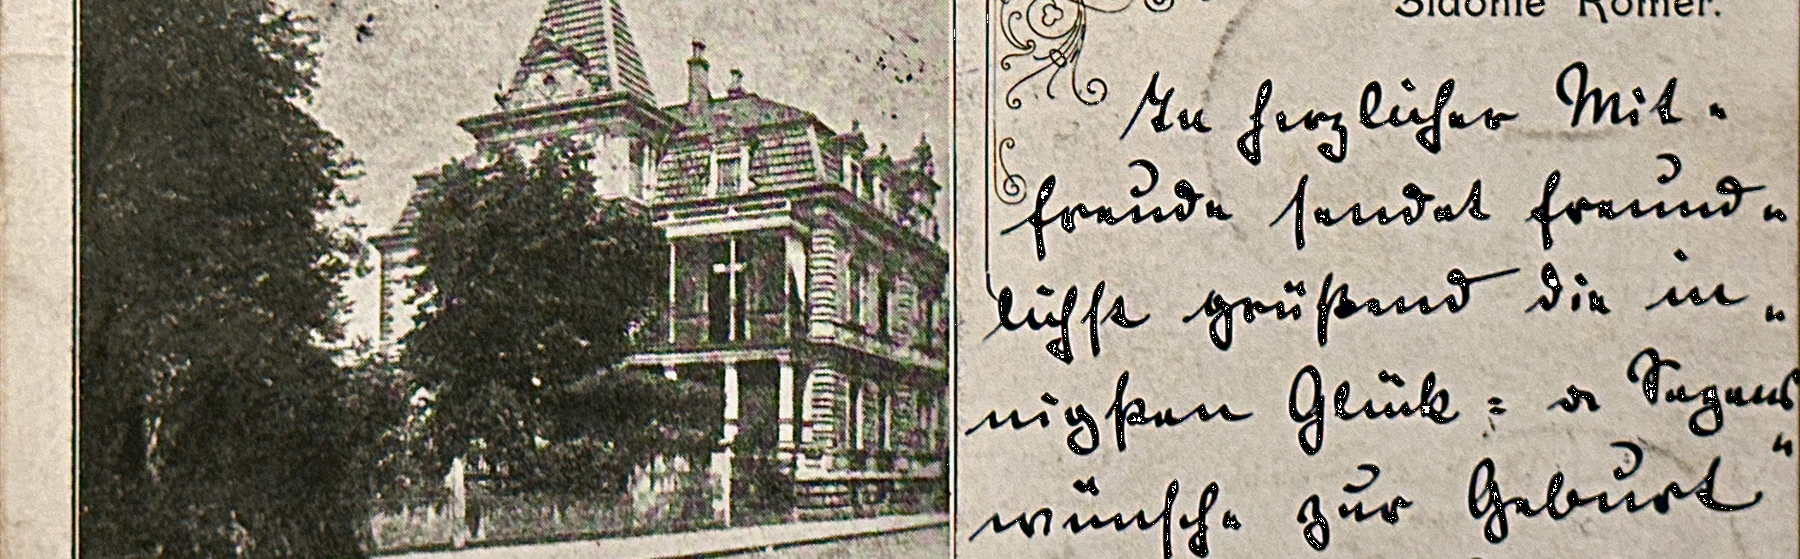 Sidonie Römer.
In herzlicher Mit-
freude sendet freund-
lichst grüßend die in-
nigsten Glück= u Segens-
wünsche zur Geburt